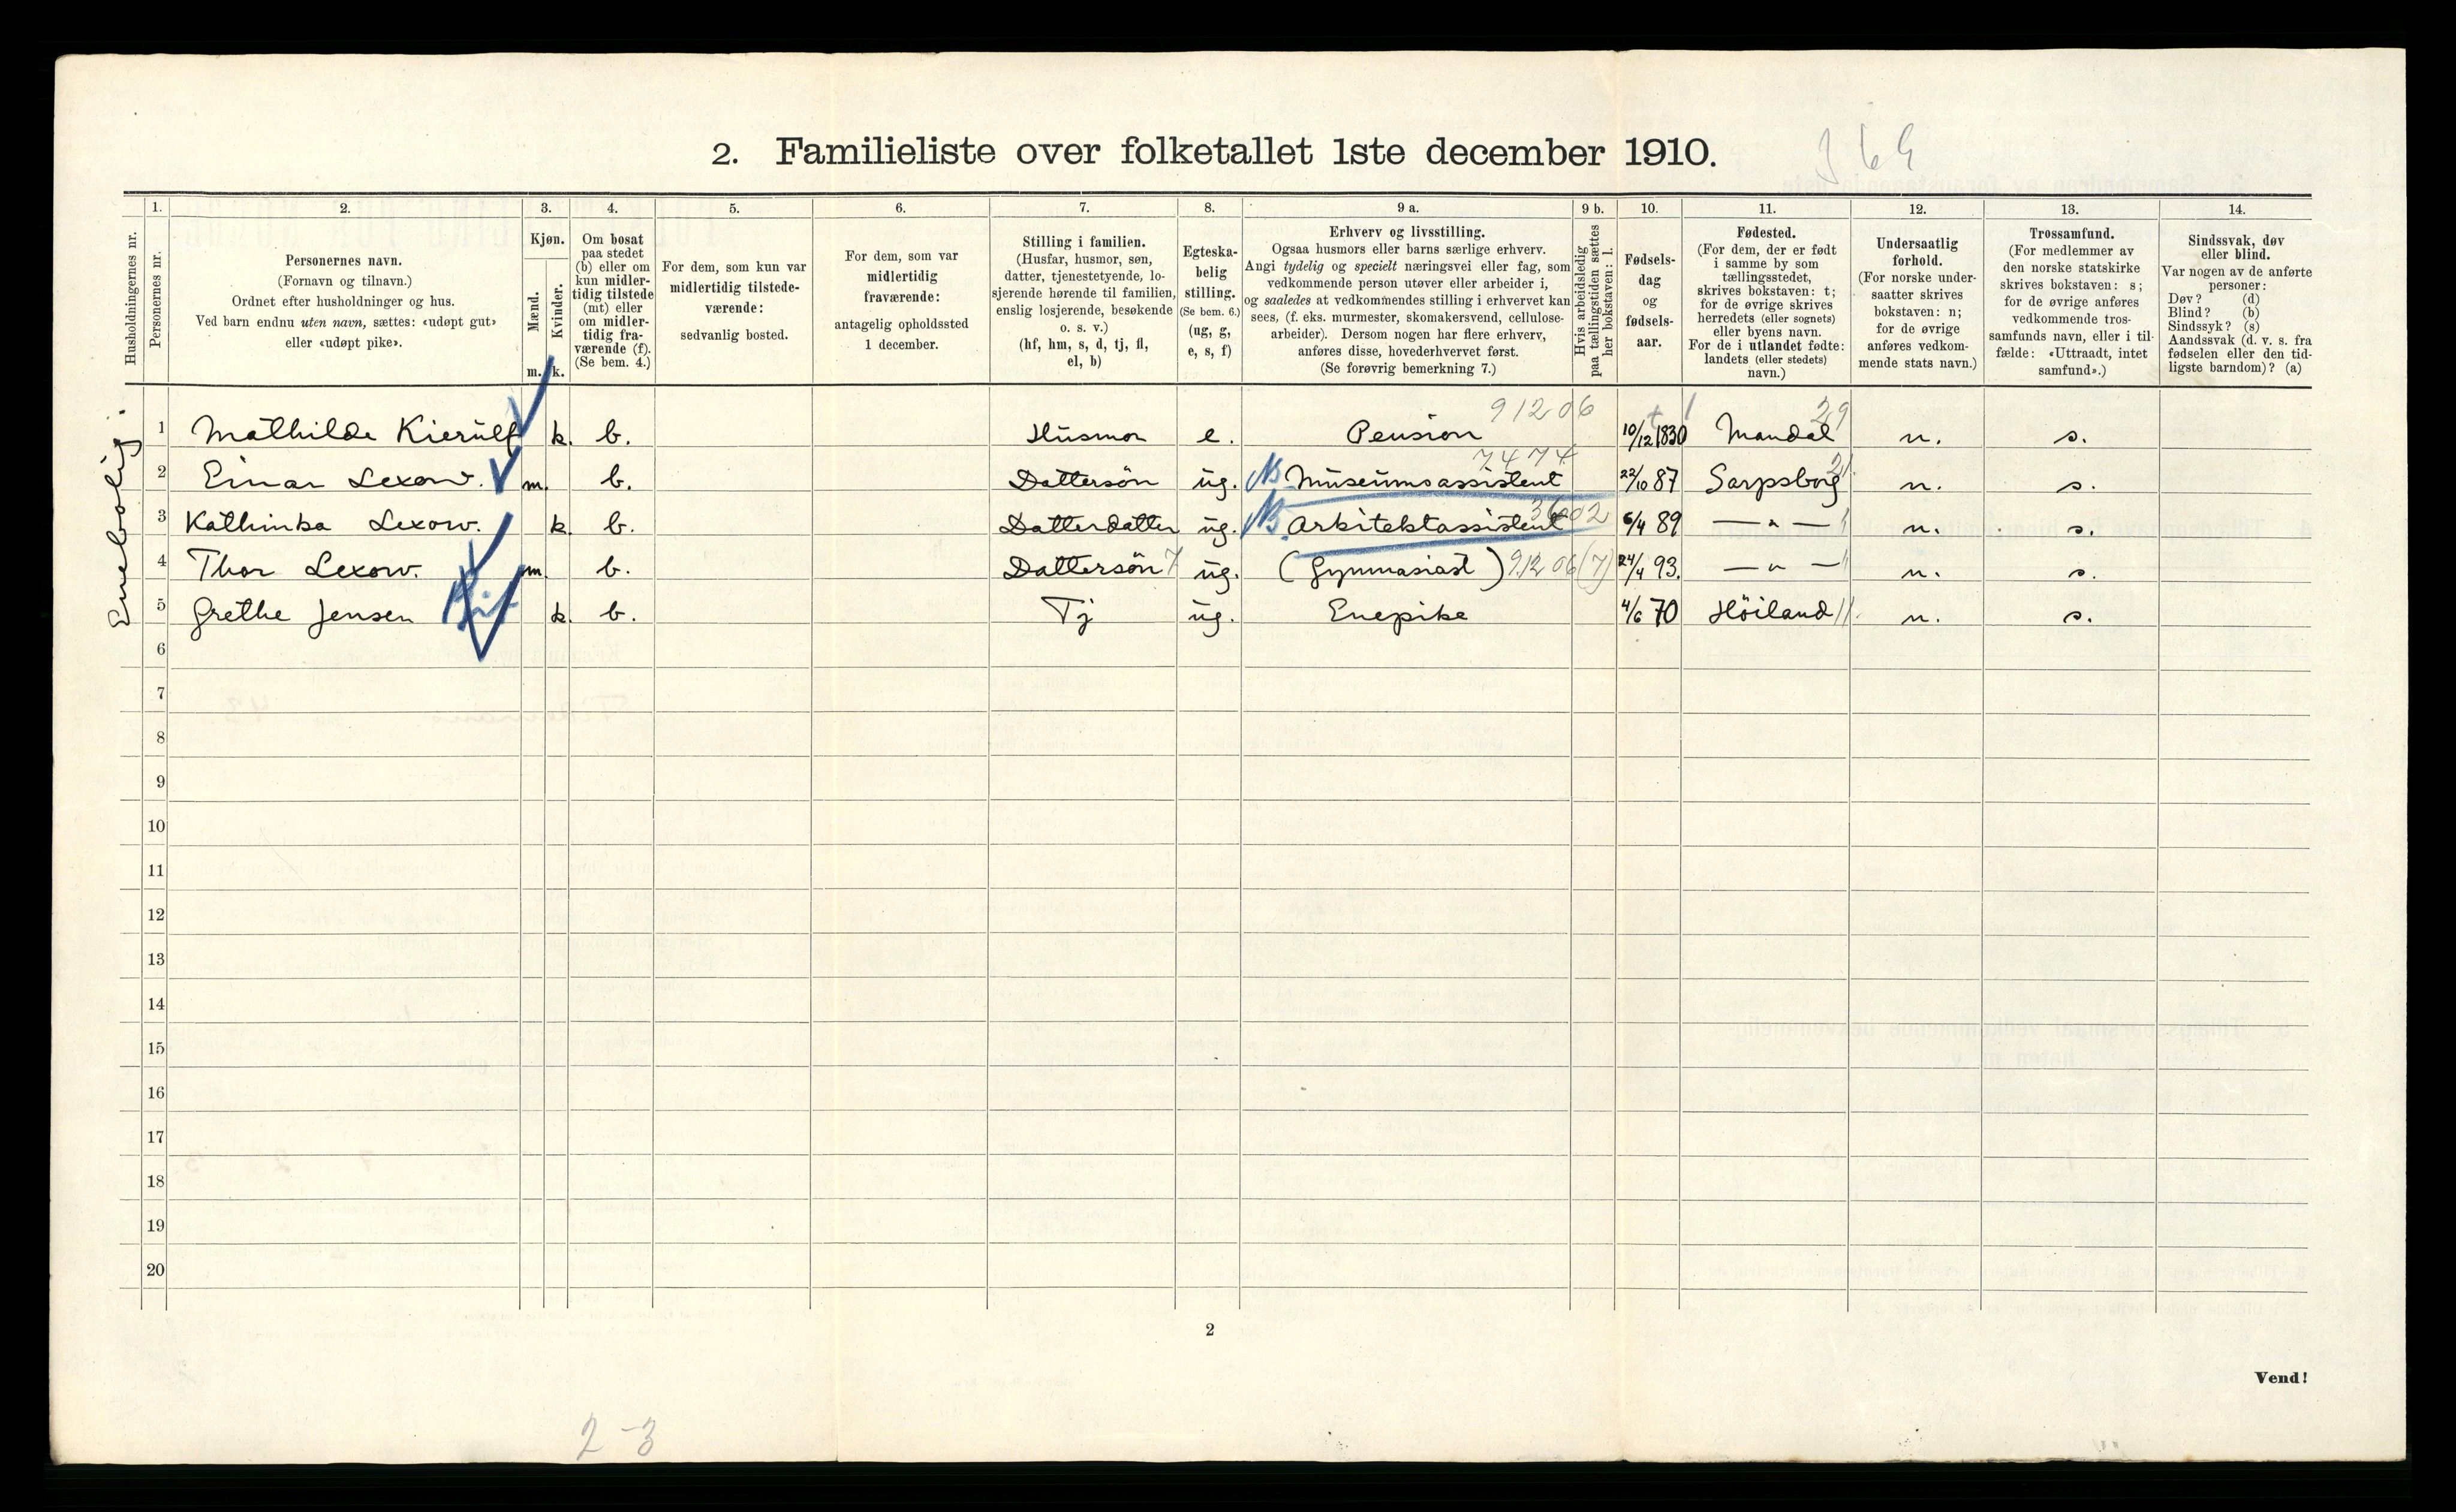 2. Familieliste over folketallet 1ste december 1910.
369
1. 2. 3. 4. 5. 6. 7. 8. 9 a. 9 b. 10. 11. 12. 13. 14.
Husholdningernes nr.
Personernes nr.
Personernes navn.
(Fornavn og tilnavn.)
Ordnet efter husholdninger og hus.
Ved barn endnu uten navn, sættes: «udøpt gut»
eller «udøpt pike».
Kjøn.
Mænd.
Kvinder.
m. k.
Om bosat
paa stedet
(b) eller om
kun midler-
tidig tilstede
(mt) eller
om midler-
tidig fra-
værende (f).
(Se bem. 4.)
For dem, som kun var
midlertidig tilstede-
værende:
sedvanlig bosted.
For dem, som var
midlertidig
fraværende:
antagelig opholdssted
1 december.
Stilling i familien.
(Husfar, husmor, søn,
datter, tjenestetyende, lo-
sjerende hørende til familien,
enslig losjerende, besøkende
o. s. v.)
(hf, hm, s, d, tj, fl,
el, b)
Egteska-
belig
stilling.
(Se bem. 6.)
(ug, g,
e, s, f)
Erhverv og livsstilling.
Ogsaa husmors eller barns særlige erhverv.
Angi tydelig og specielt næringsvei eller fag, som
vedkommende person utøver eller arbeider i,
og saaledes at vedkommendes stilling i erhvervet kan
sees, (f. eks. murmester, skomakersvend, cellulose-
arbeider). Dersom nogen har flere erhverv,
anføres disse, hovederhvervet først.
(Se forøvrig bemerkning 7.)
Hvis arbeidsledig
paa tællingstiden sættes
her bokstaven: l.
Fødsels-
dag
og
fødsels-
aar.
Fødested.
(For dem, der er født
i samme by som
tællingsstedet,
skrives bokstaven: t;
for de øvrige skrives
herredets (eller sognets)
eller byens navn.
For de i utlandet fødte:
landets (eller stedets)
navn.)
Undersaatlig
forhold.
(For norske under-
saatter skrives
bokstaven: n;
for de øvrige
anføres vedkom-
mende stats navn.)
Trossamfund.
(For medlemmer av
den norske statskirke
skrives bokstaven: s;
for de øvrige anføres
vedkommende tros-
samfunds navn, eller i til-
fælde: «Uttraadt, intet
samfund».)
Sindssvak, døv
eller blind.
Var nogen av de anførte
personer:
Døv? (d)
Blind? (b)
Sindssyk? (s)
Aandssvak (d. v. s. fra
fødselen eller den tid-
ligste barndom)? (a)
Enebolig.
91206 29
1 Mathilde Kierulf k. b. Husmor e. Pension 10/12 1830 Mandal n. s.
7474 21
2 Einar Lexow. m. b. Dattersön ug. NB Museumsassistent 22/10 87 Sarpsborg n. s.
36002
3 Kathinka Lexow. k. b. Datterdatter ug. NB. Arkitektassistent 6/4 89 — " — n. s.
4 Thor Lexow. m. b. Dattersön 7 ug. (Gymnasiast) 91206 (7) 24/4 93. — " — n. s.
5 Grethe Jensen k. b. Tj ug. Enepike 4/6 70 Höiland n. s.
6
7
8
9
10
11
12
13
14
15
16
17
18
19
20
2
Vend!
2-3